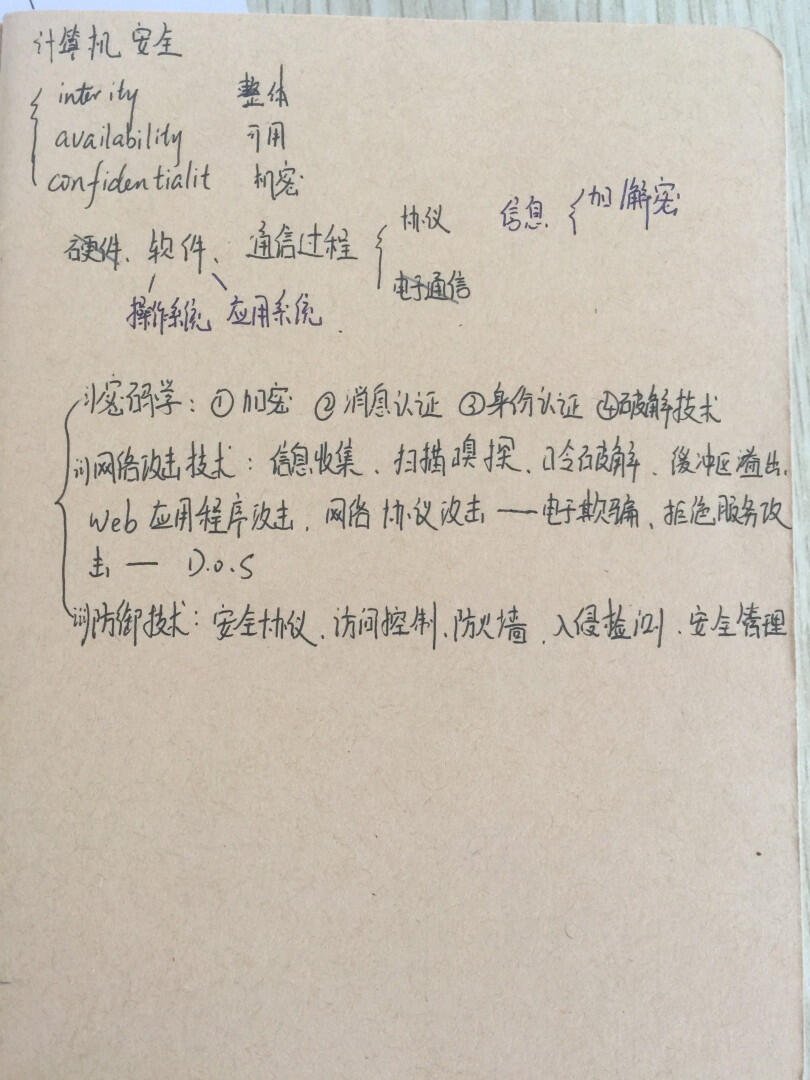 计算机安全
interity 整体
availability 可用
confidentialit 机密
硬件、软件、通信过程 协议 信息 加/解密
电子通信
操作系统 应用系统
密码学：①加密 ②消息认证 ③身份认证 ④破解技术
网络攻击技术：信息收集、扫描嗅探、口令破解、缓冲区溢出、
Web应用程序攻击、网络协议攻击——电子欺骗、拒绝服务攻
击— D.o.S
防御技术：安全协议、访问控制、防火墙、入侵检测、安全管理